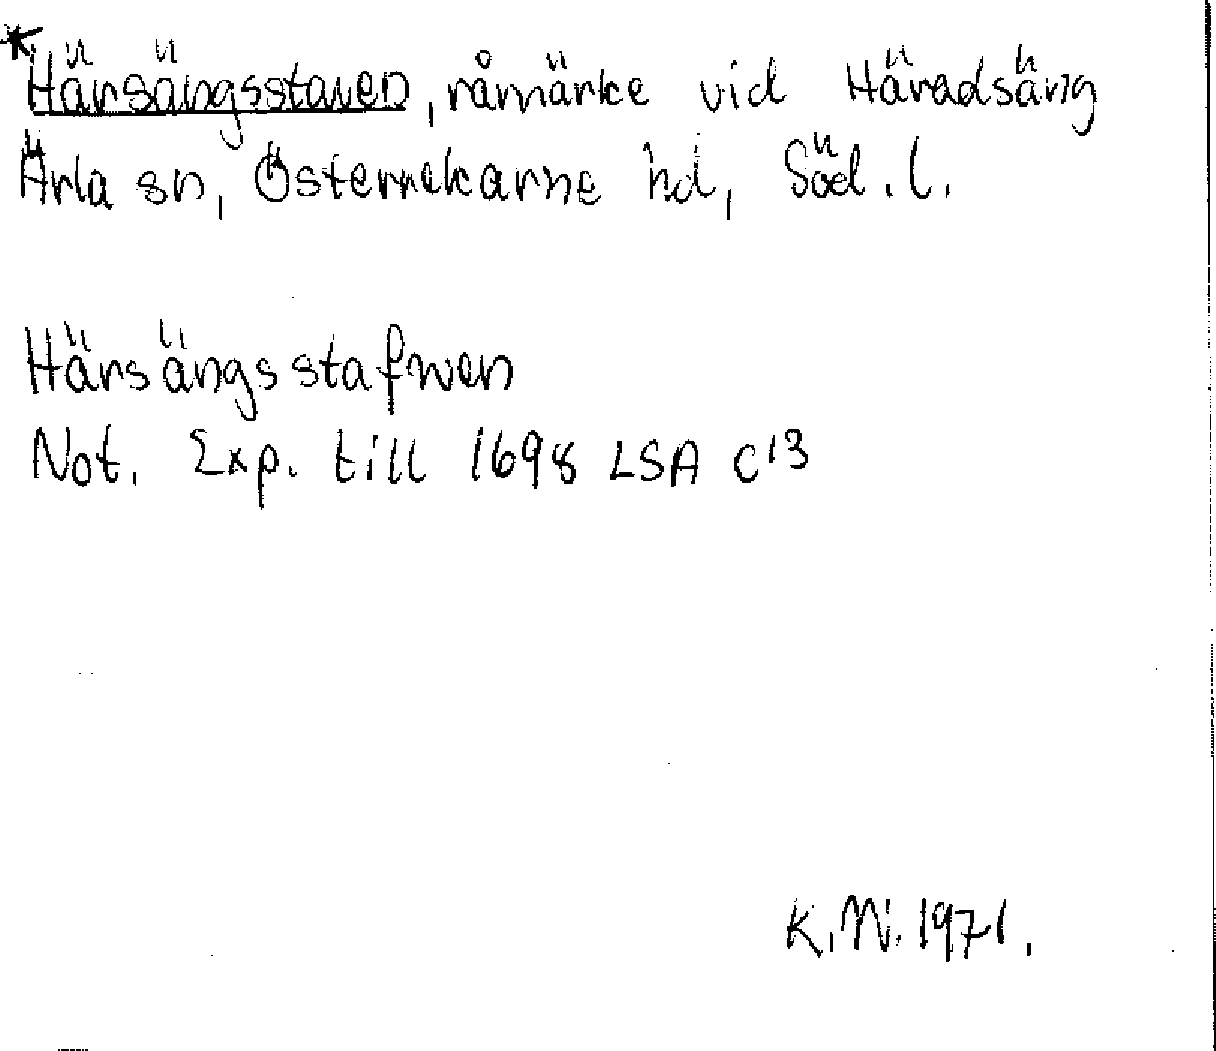 *Härsängsstaven, råmärke vid Häradsäng
Ärla sn, Österrekarne hd, Söd. l.
Härsängsstafwen
Not. Exp. till 1698 LSA C13
K. Ni. 1971.